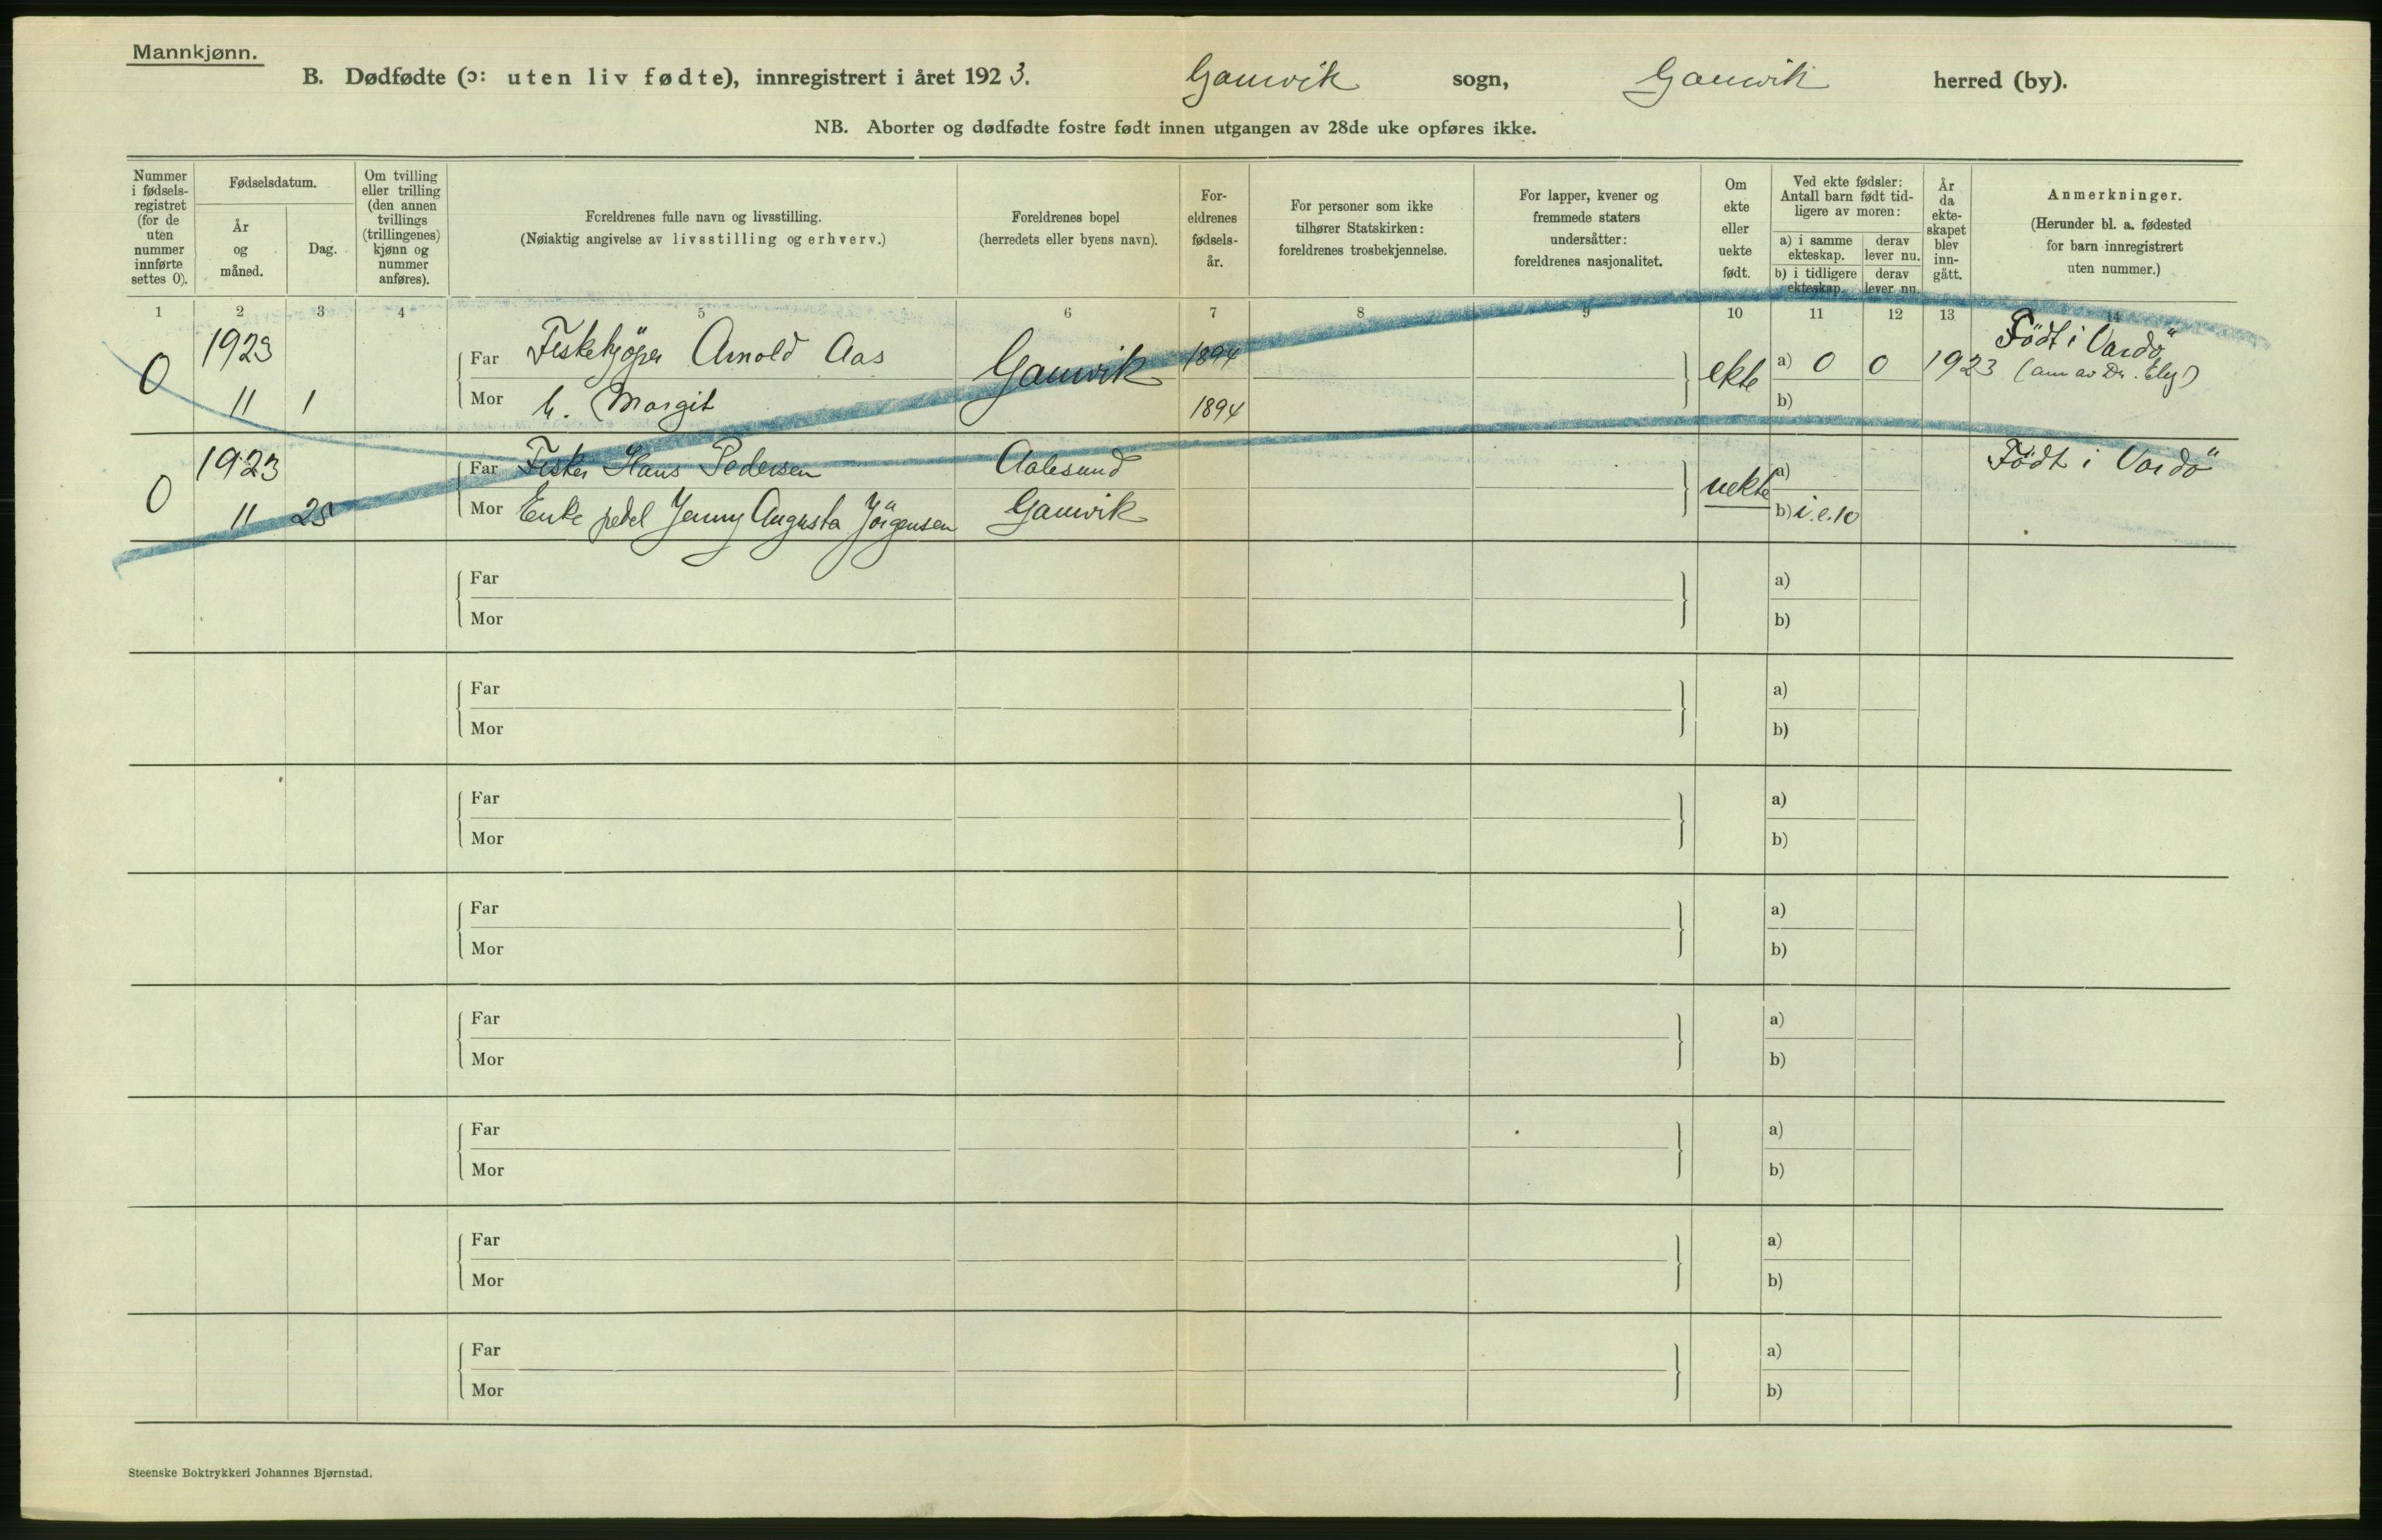 Mannkjønn.
B. Dødfødte (ɔ: uten liv fødte), innregistrert i året 1923. Gamvik sogn, Gamvik herred (by).
NB. Aborter og dødfødte fostre født innen utgangen av 28de uke opføres ikke.
Nummer
i fødsels-
registret
(for de
uten
nummer
innførte
settes 0).
Fødselsdatum.
År
og
måned.
Dag.
Om tvilling
eller trilling
(den annen
tvillings
(trillingenes)
kjønn og
nummer
anføres).
Foreldrenes fulle navn og livsstilling.
(Nøiaktig angivelse av livsstilling og erhverv.)
Foreldrenes bopel
(herredets eller byens navn).
For-
eldrenes
fødsels-
år.
For personer som ikke
tilhører Statskirken:
foreldrenes trosbekjennelse.
For lapper, kvener og
fremmede staters
undersåtter:
foreldrenes nasjonalitet.
Om
ekte
eller
uekte
født.
Ved ekte fødsler:
Antall barn født tid-
ligere av moren:
a) i samme
ekteskap.
derav
lever nu.
b) i tidligere
ekteskap.
derav
lever nu.
År
da
ekte-
skapet
blev
inn-
gått.
Anmerkninger.
(Herunder bl. a. fødested
for barn innregistrert
uten nummer.)
1 2 3 4 5 6 7 8 9 10 11 12 13 14
0 1923 Far Fiskekjöper Arnold Aas Gamvik 1894 ekte a) 0 0 1923 Födt i Vardö
11 1 Mor h. Margit 1894 b)
0 1923 Far Fisker Hans Pedersen Aalesund uekte a) Födt i Vardö
11 25 Mor Enke Jenny Augusta Jörgensen Gamvik b) i.e. 10
Far a)
Mor b)
Far a)
Mor b)
Far a)
Mor b)
Far a)
Mor b)
Far a)
Mor b)
Far a)
Mor b)
Far a)
Mor b)
Far a)
Mor b)
Steenske Boktrykkeri Johannes Bjørnstad.